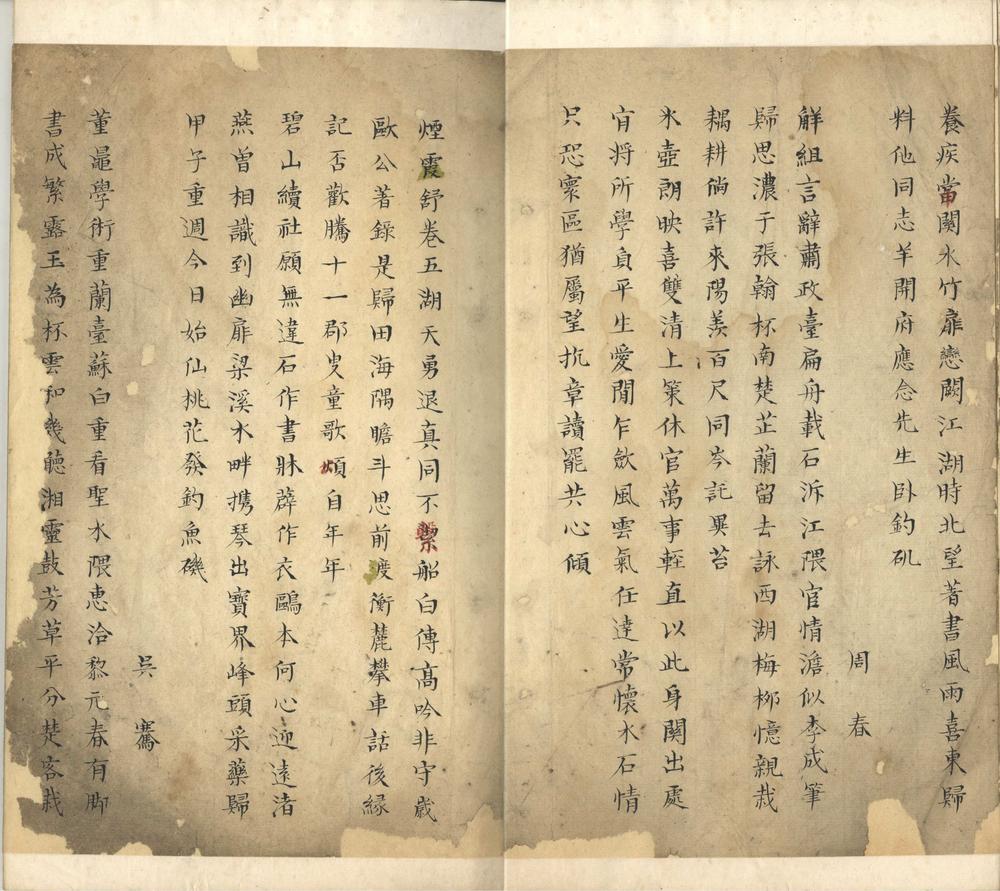 養疾當關水竹扉戀闕江湖時北望著書風雨喜東歸
料他同志羊開府應念先生臥釣矶
周春
觧組言辭肅政臺扁舟載石泝江隈官情澹似李成筆
歸思濃于張翰杯南楚芷蘭留去詠西湖梅栁憶親栽
耦耕倘許來陽羨百尺同岑託異苔
氷壺朗映喜雙清上策休官萬事輕直以此身關出處
肎將所學負平生愛閒乍歛風雲氣任達常懷水石情
只恐寰區猶屬望抗章讀罷共心傾
煙霞舒卷五湖天勇退真同不繫船白傅高吟非守歲
歐公著錄是歸田海隅瞻斗思前渡衡麓攀車話後緣
記否歡騰十一郡叟童歌頌自年年
碧山續社願無違石作書牀薜作衣鷗本何心迎遠渚
燕曾相識到幽扉梁溪水畔携琴出寶界峰頭采藥歸
甲子重週今日始仙桃花發釣魚磯
吳騫
董鼂學術重蘭臺蘇白重看聖水隈惠洽黎元春有脚
書成繁露玉為杯雲和幾聽湘靈鼓芳草平分楚客栽